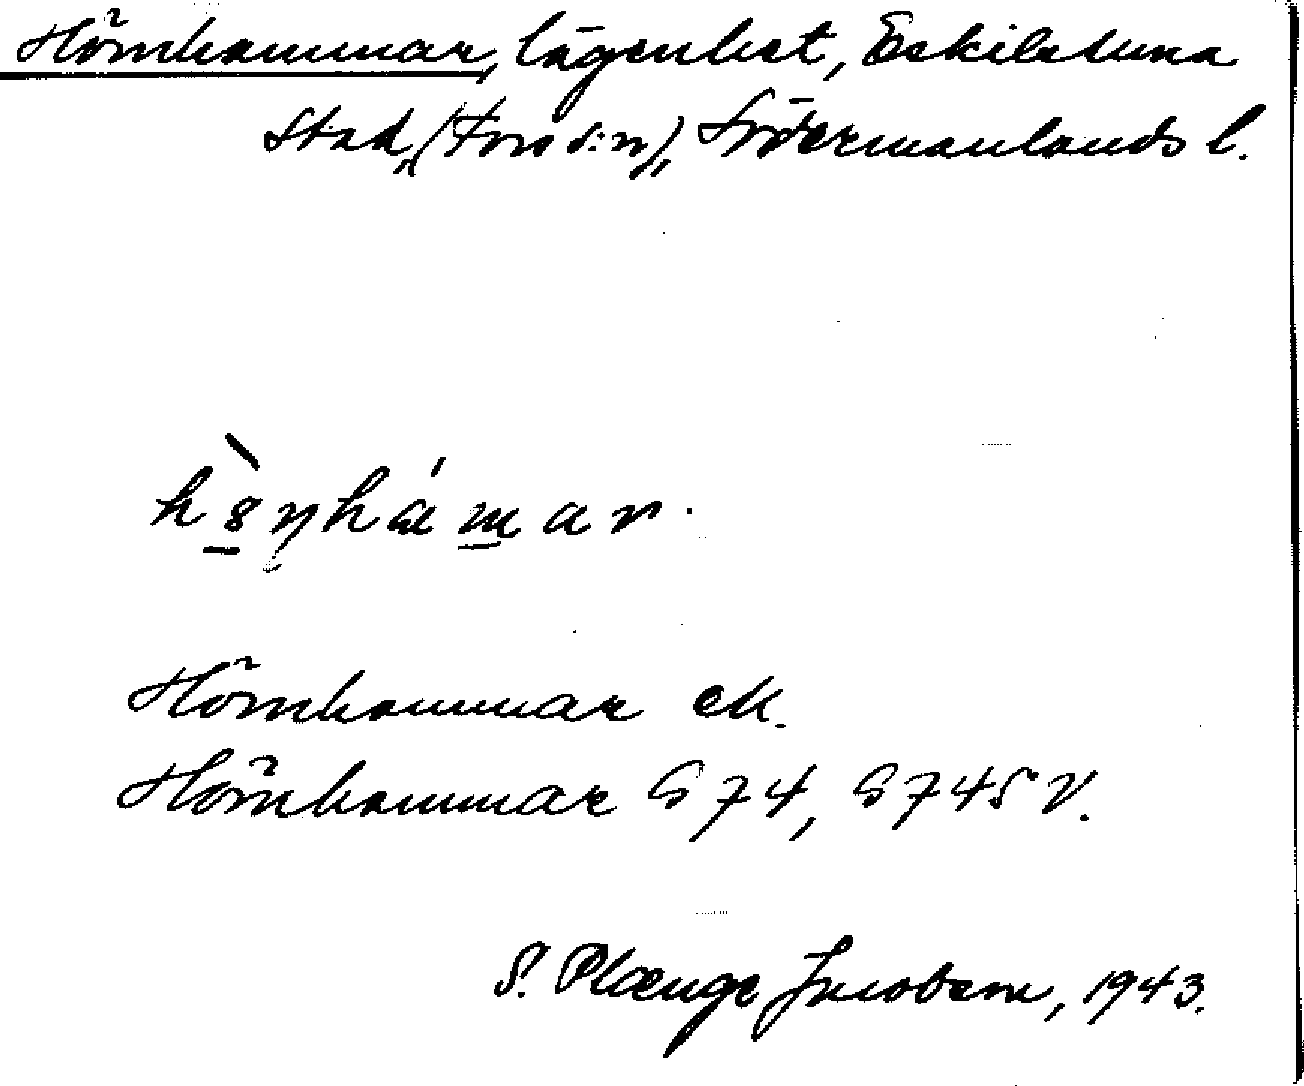 Hörnhammar, lägenhet, Eskilstuna
Stad, (Fors s:n), Södermanlands l.
hö̀ṇhámar.
Hörnhammar ek.
Hörnhammar G 74, G 745 V.
S. Plænge Jacobsen, 1943.